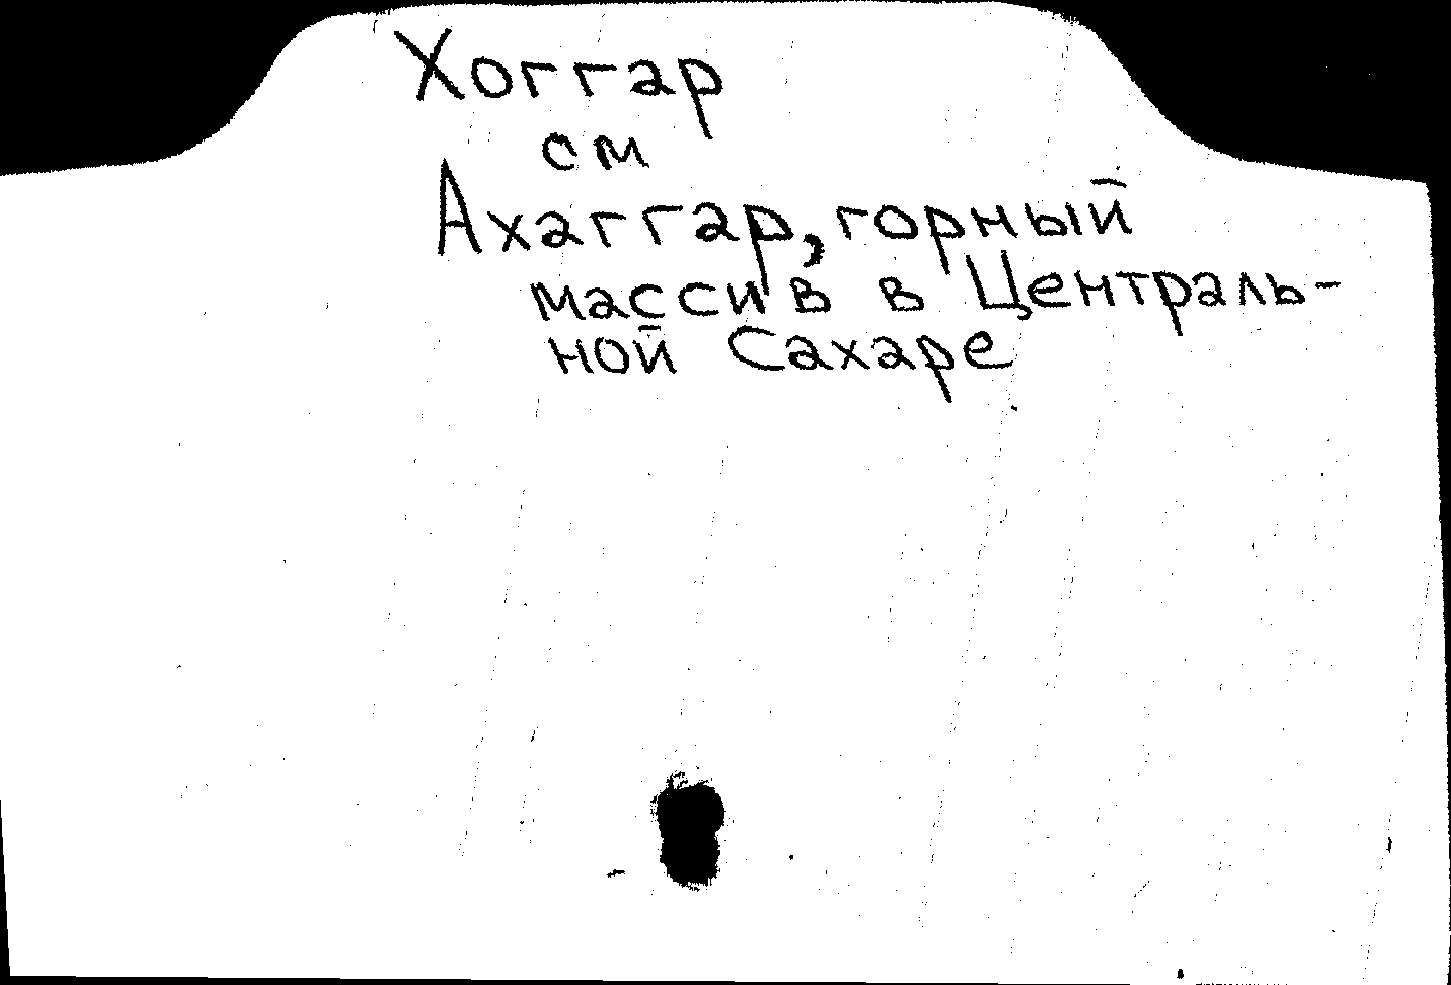 Хоггар
см
Ахаггар, горный
массив в Централь-
ной Сахаре